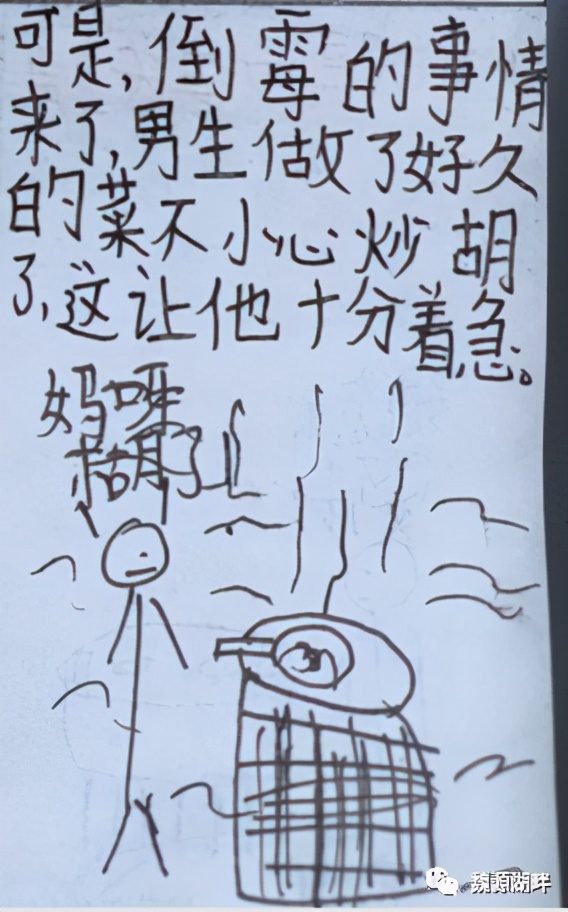 可是,倒霉的事情
来了,男生做了好久
的菜不小心炒胡
了,这让他十分着急。
妈呀
胡了